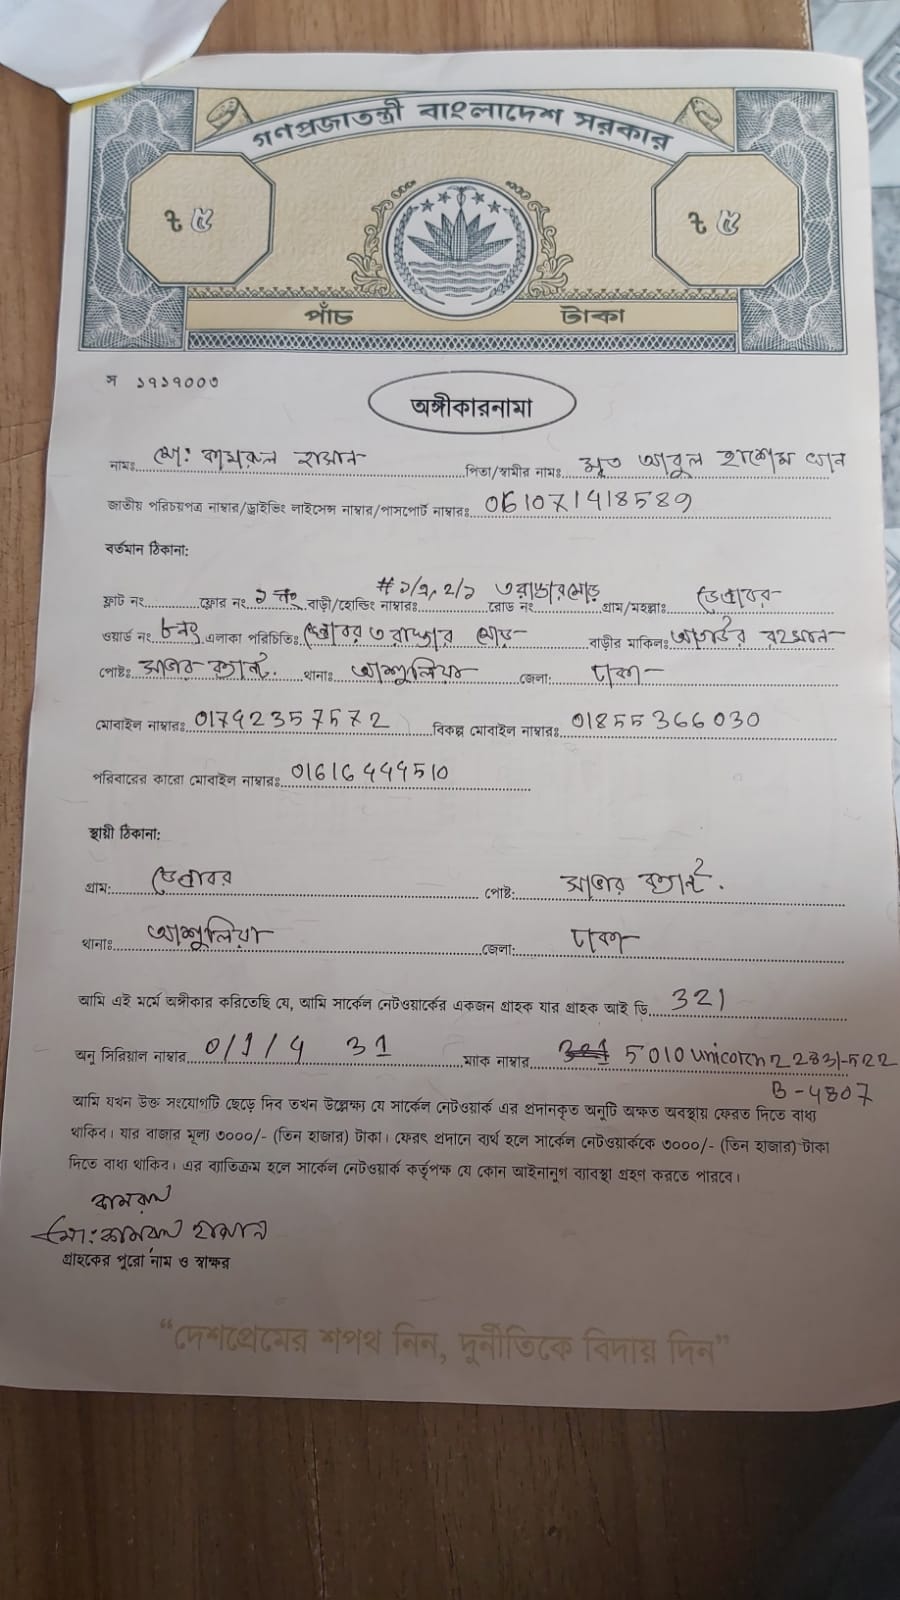 গণপ্রজাতন্ত্রী বাংলাদেশ সরকার
৳ ৫ ৳ ৫
পাঁচ টাকা
স ১৭১৭০০৩
অঙ্গীকারনামা
নামঃ মো: কামরুল হাসান পিতা/স্বামীর নামঃ মৃত আবুল হাশেম খান
জাতীয় পরিচয়পত্র নাম্বার/ড্রাইভিং লাইসেন্স নাম্বার/পাসপোর্ট নাম্বারঃ 061071418589
বর্তমান ঠিকানা:
ফ্লাট নং ফ্লোর নং ১ নং বাড়ী/হোল্ডিং নাম্বারঃ # ১/৭, ২/১ রোড নং ৩ রাস্তার মোড় গ্রাম/মহল্লাঃ
ওয়ার্ড নং ৮ নং এলাকা পরিচিতিঃ ৩ রাস্তার মোড় বাড়ীর মালিকঃ আতাউর রহমান
পোষ্টঃ সাভার ক্যান্ট. থানাঃ আশুলিয়া জেলা: ঢাকা
মোবাইল নাম্বারঃ 01742357572 বিকল্প মোবাইল নাম্বারঃ 01855366030
পরিবারের কারো মোবাইল নাম্বারঃ 01616444510
স্থায়ী ঠিকানা:
গ্রাম: পোষ্ট: সাভার ক্যান্ট.
থানাঃ আশুলিয়া জেলা: ঢাকা
আমি এই মর্মে অঙ্গীকার করিতেছি যে, আমি সার্কেল নেটওয়ার্কের একজন গ্রাহক যার গ্রাহক আই ডি 321
অনু সিরিয়াল নাম্বার 0/1/4 31 ম্যাক নাম্বার 5010unicorn22831-522
B-4807
আমি যখন উক্ত সংযোগটি ছেড়ে দিব তখন উল্লেক্ষ্য যে সার্কেল নেটওয়ার্ক এর প্রদানকৃত অনুটি অক্ষত অবস্থায় ফেরত দিতে বাধ্য
থাকিব। যার বাজার মূল্য ৩০০০/- (তিন হাজার) টাকা। ফেরৎ প্রদানে ব্যর্থ হলে সার্কেল নেটওয়ার্ককে ৩০০০/- (তিন হাজার) টাকা
দিতে বাধ্য থাকিব। এর ব্যতিক্রম হলে সার্কেল নেটওয়ার্ক কর্তৃপক্ষ যে কোন আইনানুগ ব্যাবস্থা গ্রহণ করতে পারবে।
কামরুল
মো: কামরুল হাসান
গ্রাহকের পুরো নাম ও স্বাক্ষর
“দেশপ্রেমের শপথ নিন, দুর্নীতিকে বিদায় দিন”